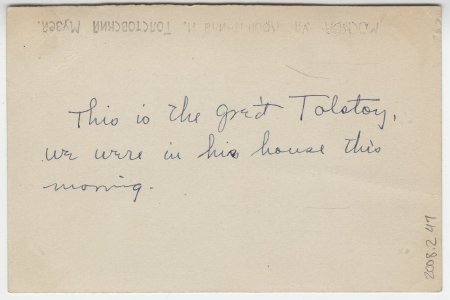 Толстовский Музей
This is the great Tolstoy,
we were in his house this
morning.
2008.2.47